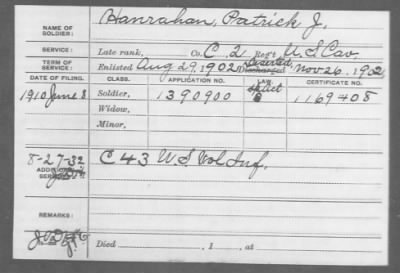 NAME OF SOLDIER: Hanrahan, Patrick J.
SERVICE: Late rank, Co. C. 2 Reg't U.S Cav.
TERM OF SERVICE: Enlisted Aug 29, 1902 Discharged Deserted, Nov 26, 1902
DATE OF FILING. CLASS. APPLICATION NO. LAW. CERTIFICATE NO.
1910 June 8 Soldier, 1390900 1169408
Widow,
Minor,
8-27-32 C 43 U.S. Vol Inf.
ADDITIONAL SERVICE:
REMARKS:
Died , 1 , at